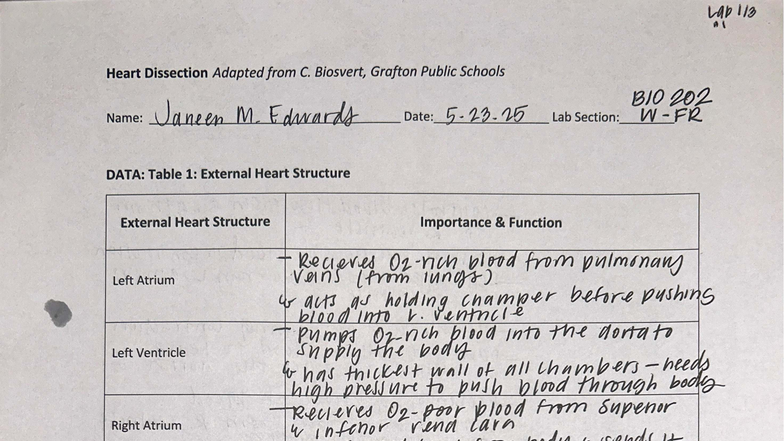 Lab 1/3
Heart Dissection Adapted from C. Biosvert, Grafton Public Schools
BIO 202
Name: Janeen M. Edwards Date: 5-23-25 Lab Section: W-FR
DATA: Table 1: External Heart Structure
External Heart Structure Importance & Function
Left Atrium
- Recieves O2-rich blood from pulmonary
veins (from lungs)
↳ acts as holding chamber before pushing
blood into L. ventricle
Left Ventricle
- Pumps O2-rich blood into the aorta to
supply the body
↳ has thickest wall of all chambers - needs
high pressure to push blood through body
Right Atrium
- Recieves O2-poor blood from Superior
& inferior vena cava
body & sends it